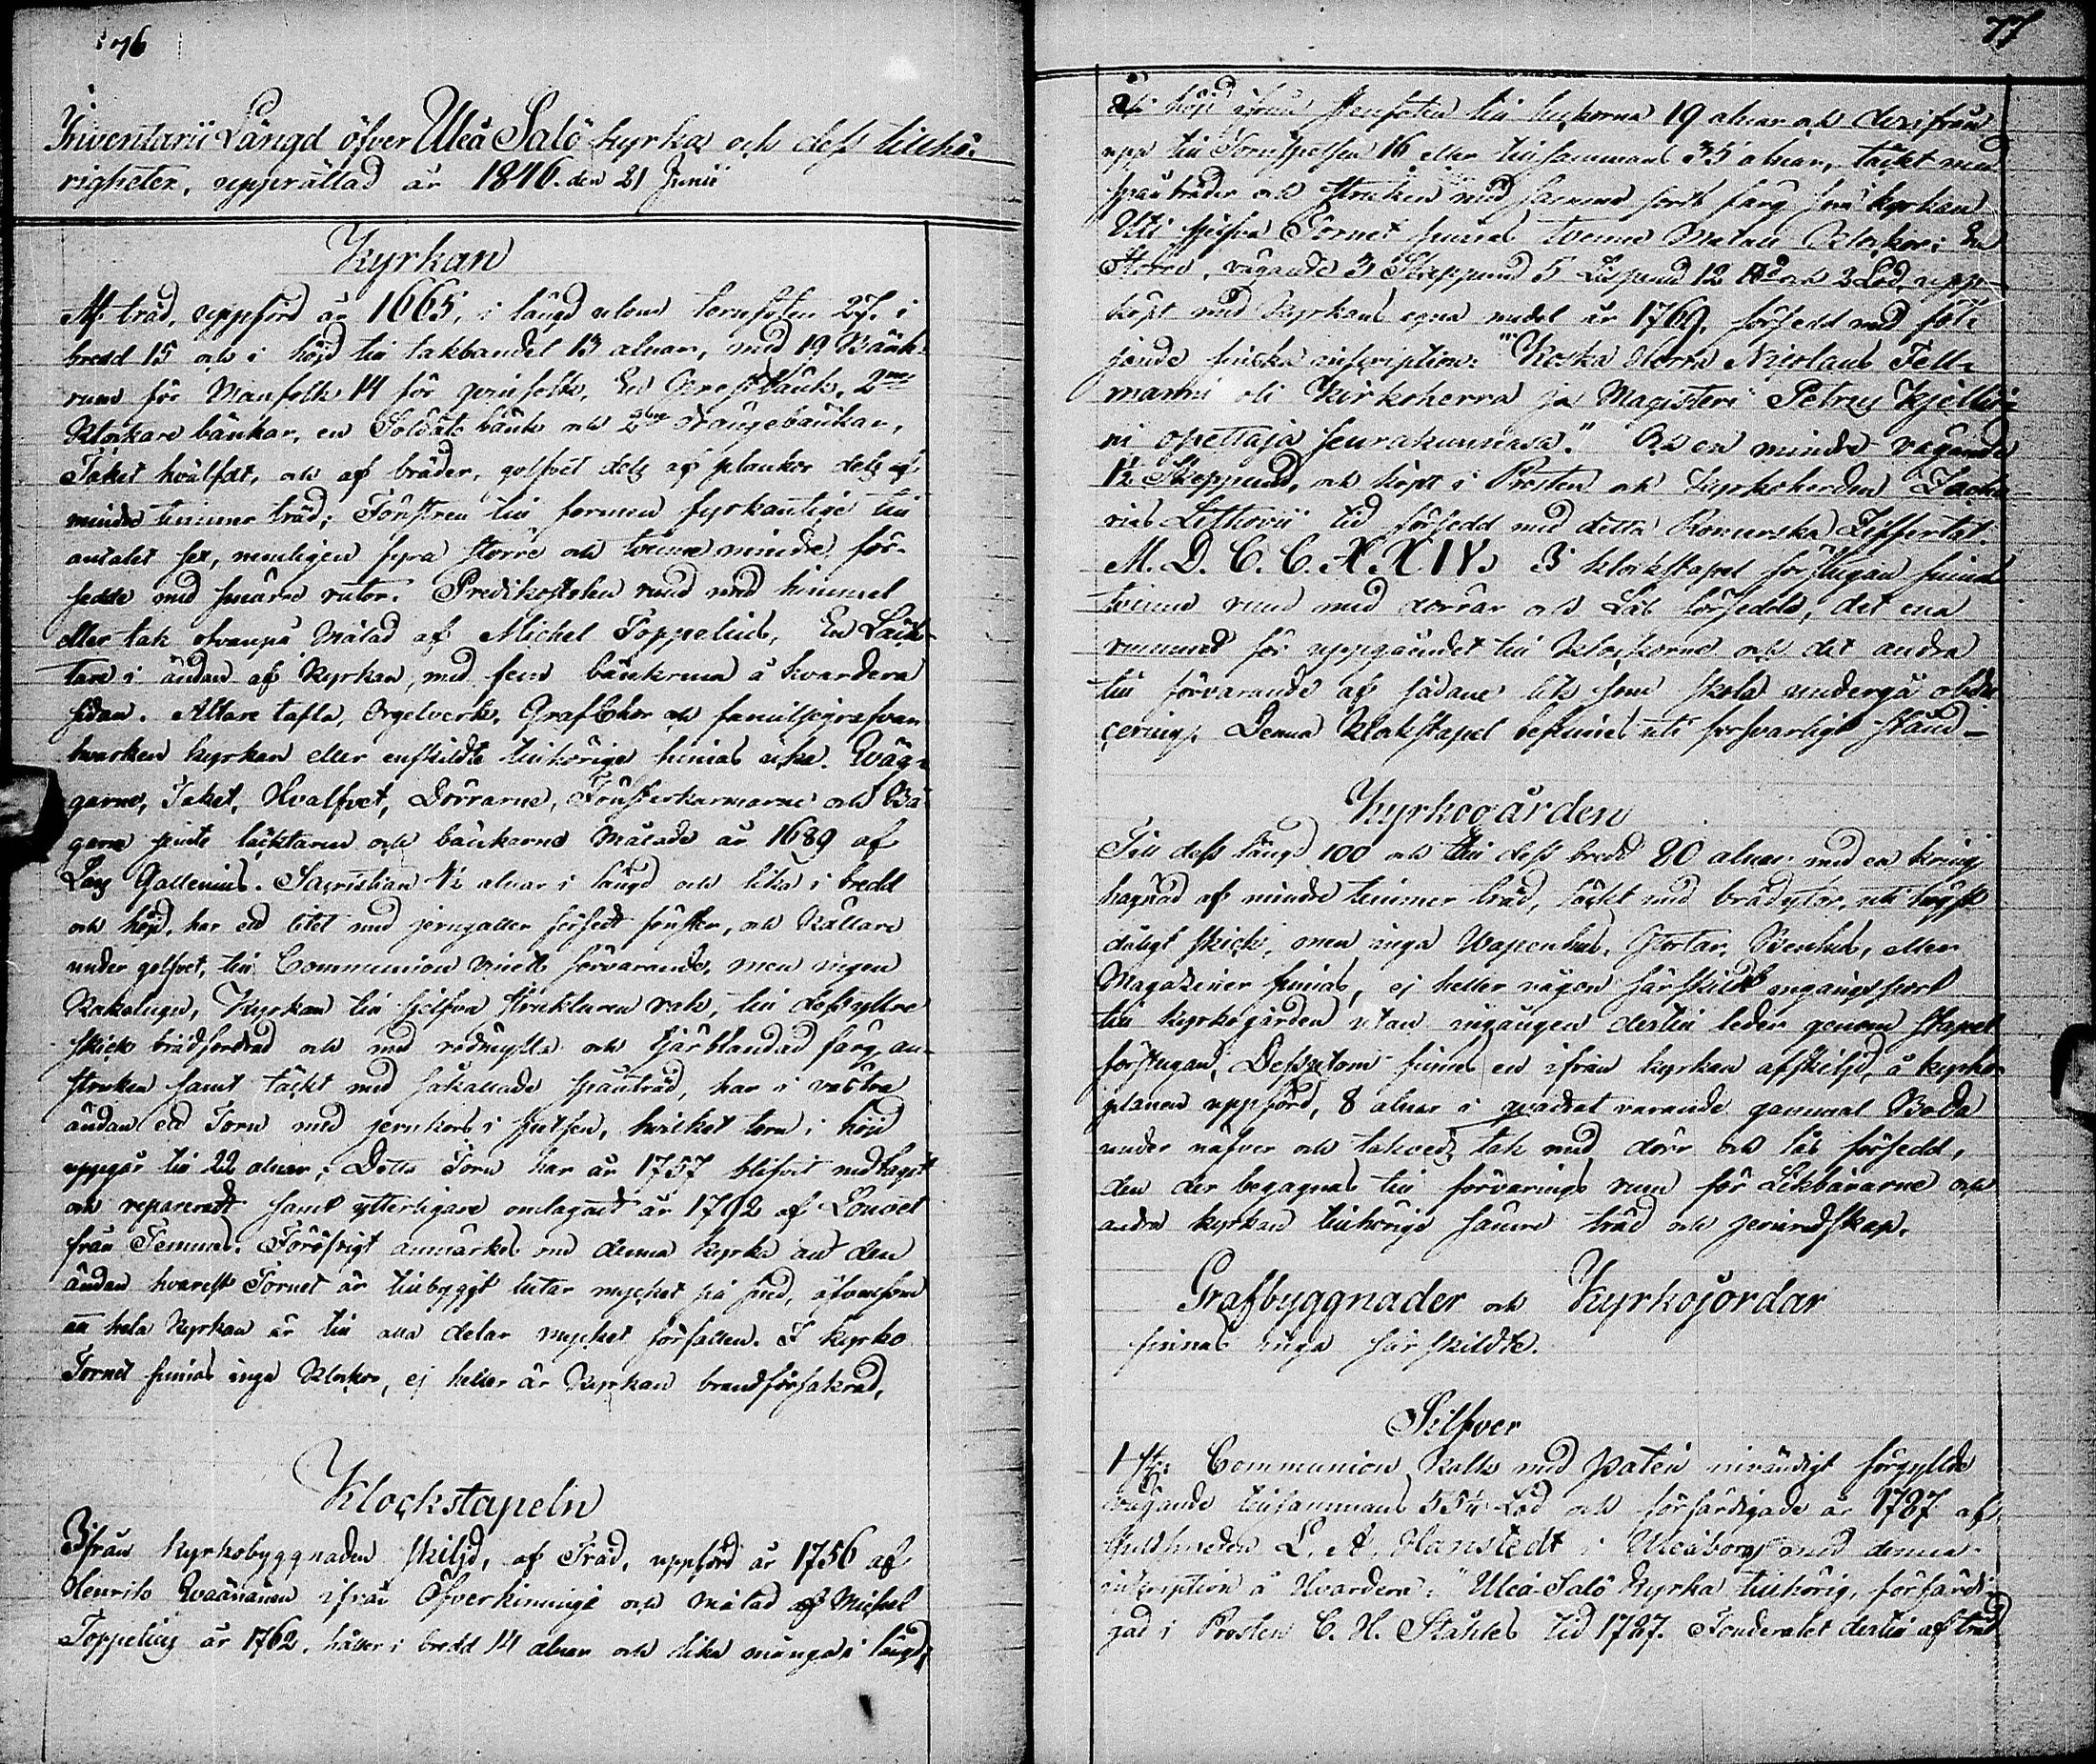 76
Inventarii Längd öfver Uleå Salo kyrka och dess tillhö-
righeter, upprättad år 1846. den 21 Junii
Kyrkan
Af träd, uppförd år 1665, i längd utom tornfoten 27. i
bredd 15 och i höjd till takbandet 13 alnar, med 19 Bänk-
rum för Manfolk 14 för qvinfolk, En Brudbänk, 2ne
Klockare bänkar, en Soldats bänk och 2ne Drängebänkar,
Taket hvälfdt, och af bräder, golfvet dels af plankor dels af
mindre timmer träd; Fönstren till formen fyrkantige till
antalet sex, nemligen fyra större och tvenne mindre för-
sedde med smärre rutor. Predikostolen rund med himmel
eller tak ofvanpå Målad af Michel Toppelius, En Läck-
tare i ändan af Kyrkan, med fem bänkrum å hvardera
sidan. Altare tafla, Orgelverk, Grafchor och familjegrafvar
hvarken kyrkan eller enskildte tillhörige finnas icke. Väg-
garne, Taket, Hvalfvet, Dörrarne, Fönsterkarmarne och Bå-
garne jemte läcktaren och bänkarne Målade år 1689 af
Lars Gallenius. Sacristian 4½ alnar i längd och lika i bredd
och höjd, har ett litet med jerngaller försedt fönster, och Källare
under golfvet, till Communion vinets förvarande, men ingen
Kakelugn, Kyrkan till sjelfva strukturen rak, till dess yttre
skick brädfordrad och med rödmylla och tjärblandad färg an-
struken samt täckt med såkallade spånträd, har i vestra
ändan ett Torn med jernkors i spetsen, hvilket torn i höjd
uppgår till 22 alnar; Detta Torn har år 1757 blifvit nedtagit
och reparerat samt ytterligare omlagadt år 1792 af Louvet
från Temmes. Föröfrigt anmärkes om denna kyrka att den
ändan hvarest Tornet är tillbyggt lutar mycket på sned, äfvensom
att hela Kyrkan är till alla delar mycket förfallen. I kyrko
Tornet finnas inga Klockor, ej heller är Kyrkan brandförsäkrad,
Klockstapeln
Ifrån kyrkobyggnaden skiljd, af Träd, uppförd år 1756 af
Henrik Waänänen ifrån Öfverkiminge och målad af Michel
Toppelius år 1762, håller i bredd 14 alnar och lika många i längd,
77
är höjd ifrån stenfoten till luckorna 19 alnar och derifrån
upp till Tornspetsen 16 eller tillsammans 35 alnar, täckt med
spånbräder och struken med samma sorts färg som kyrkan
Uti sjelfva Tornet finnes tvenne Metall Klockor: En
Större, vägande 3 Skeppund 5 Lispund 12 ℔ och 2 Lod, upp-
köpt med Kyrkans egna medel år 1769. försedd med föl-
jande finska inscription: "Koska Herra Nicolaus Fell-
manni oli Kirkoherra ja Magisteri Petrus Kjelli-
ni opettaja seurakunnasa." Och en mindre vägande
1½ Skeppund, och köpt i Prosten och Kyrkoherden Zacha-
rias Lithovii tid försedd med detta Romerska Ziffertal.
M. D. C. C. X. X IV. I klockstapel förstugan finnes
tvenne rum med dörrar och Lås försedde, det ena
rummet för uppgåendet till Klockorne och det andra
till förvarande af sådane lik som skola undergå obdu
cering. Denna Klockstapel befinnes uti försvarligt stånd -
Kyrkogården
Till dess längd 100 och till dess bredd 80 alnar med en kring
hägnad af mindre timmer träd, täckt med brädytor, uti högst
dåligt skick, men inga Wapenhus, Portar, Svenhus, eller
Magaziner finnas, ej heller någon särskild ingångsport
till kyrkogården utan ingången dertill leder genom Stapel
förstugan, Dessutom finnes en ifrån kyrkan afskiljd, å kyrko-
planen uppförd, 8 alnar i qvadrat varande gammal Boda
under näfver och takved, tak med dörr och lås försedd,
den der begagnas till förvarings rum för Likbårarne och
andra kyrkan tillhörige sämre träd och jernredskap.
Grafbyggnader och Kyrkojordar
finnas inga särskildte.
Silfver
1 st: Communion Kalk med Paten invändigt förgyllde
vägande tillsammans 55¼ Lod och förfärdigade år 1787 af
Guldsmeden L. A. Hanstedt i Uleåborg med denna
inscription å Hvardera: "Uleå-Salo Kyrka tillhörig, förfärdi-
gad i Prosten C. H. Ståhles tid 1787. Fouderalet dertill af träd